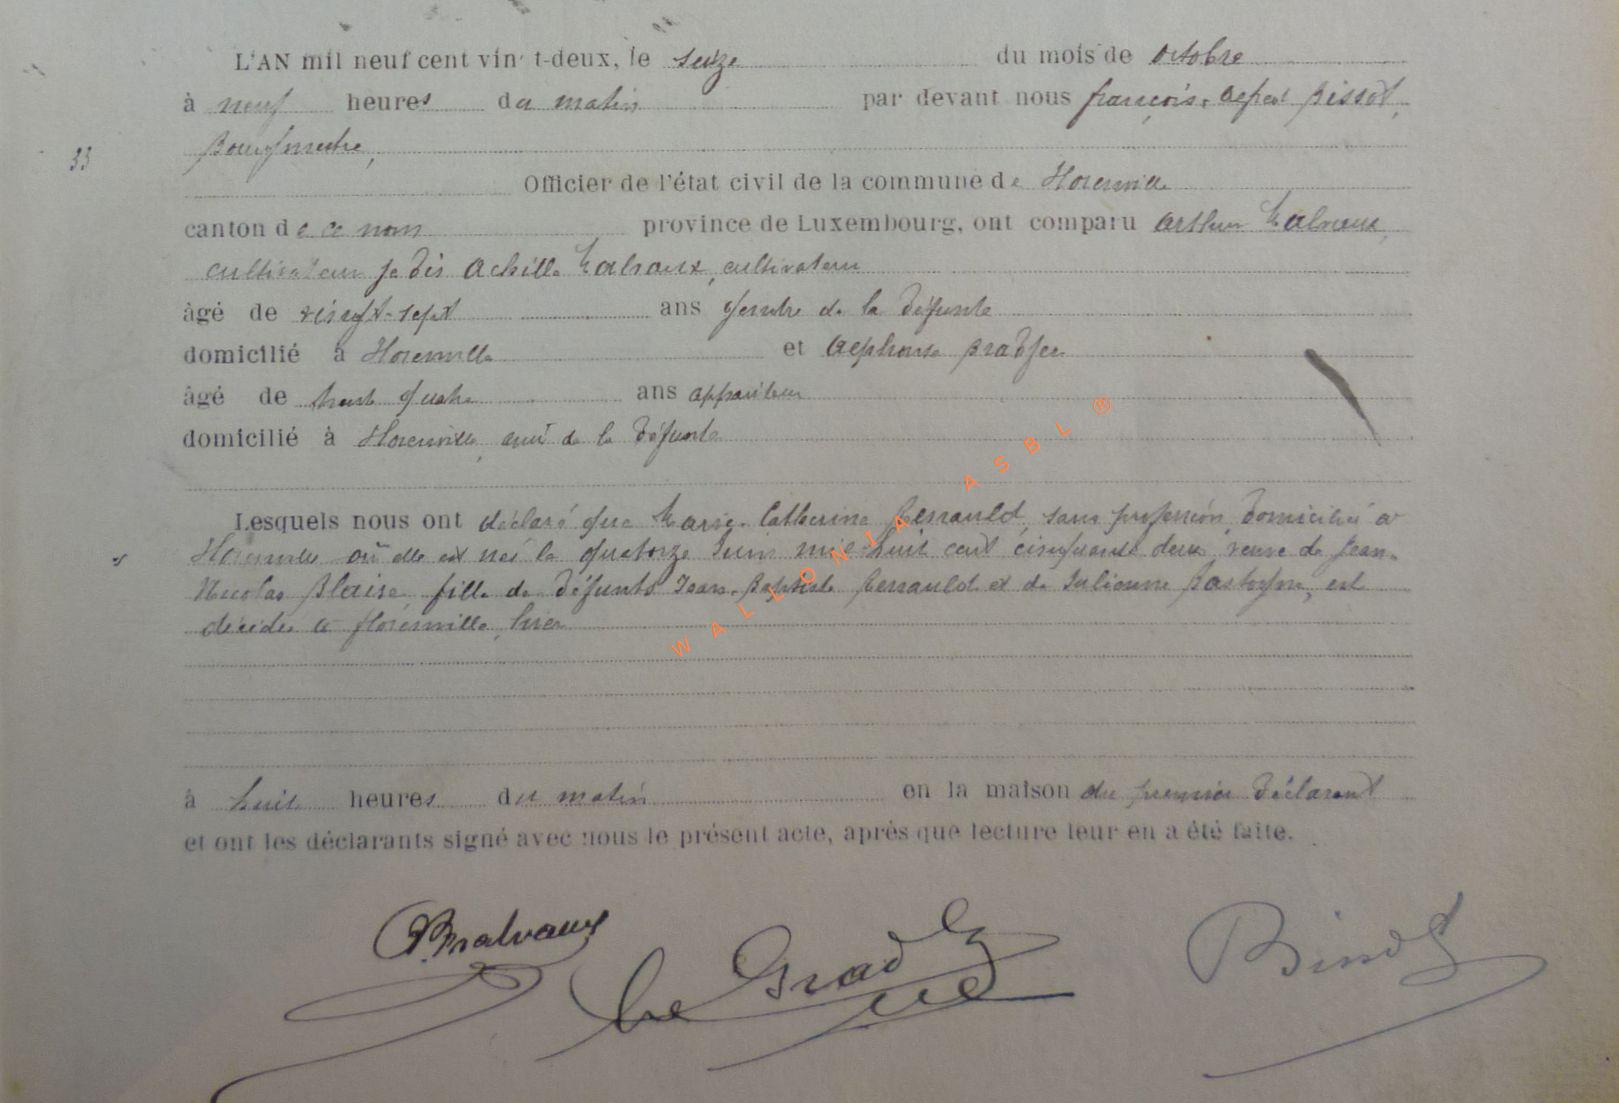 L'AN mil neuf cent vin t-deux, le seize du mois de octobre
à neuf heures du matin par devant nous françois, Alfred Bissot,
Bourgmestre,
33
Officier de l'état civil de la commune de Florenville
canton de ce nom province de Luxembourg, ont comparu Arthur Malvaux,
cultivateur je dis Achille Malvaux, cultivateur
âgé de vingt-sept ans gendre de la défunte
domicilié à Florenville et Alphonse
âgé de trente quatre ans appariteur
domicilié à Florenville, ami de la défunte
Lesquels nous ont déclaré que Marie-Catherine sans profession, domiciliée à
Florenville où elle est née le quatorze Juin mil-huit cent cinquante deux, veuve de Jean-
Nicolas Blaise, fille de défunts Jean-Baptiste et de Julienne est
décédée à florenville, hier
à huit heures du matin en la maison du premier déclarant
et ont les déclarants signé avec nous le présent acte, après que lecture leur en a été faite.
Malvaux
Bissot
WALLONIA ASBL ®